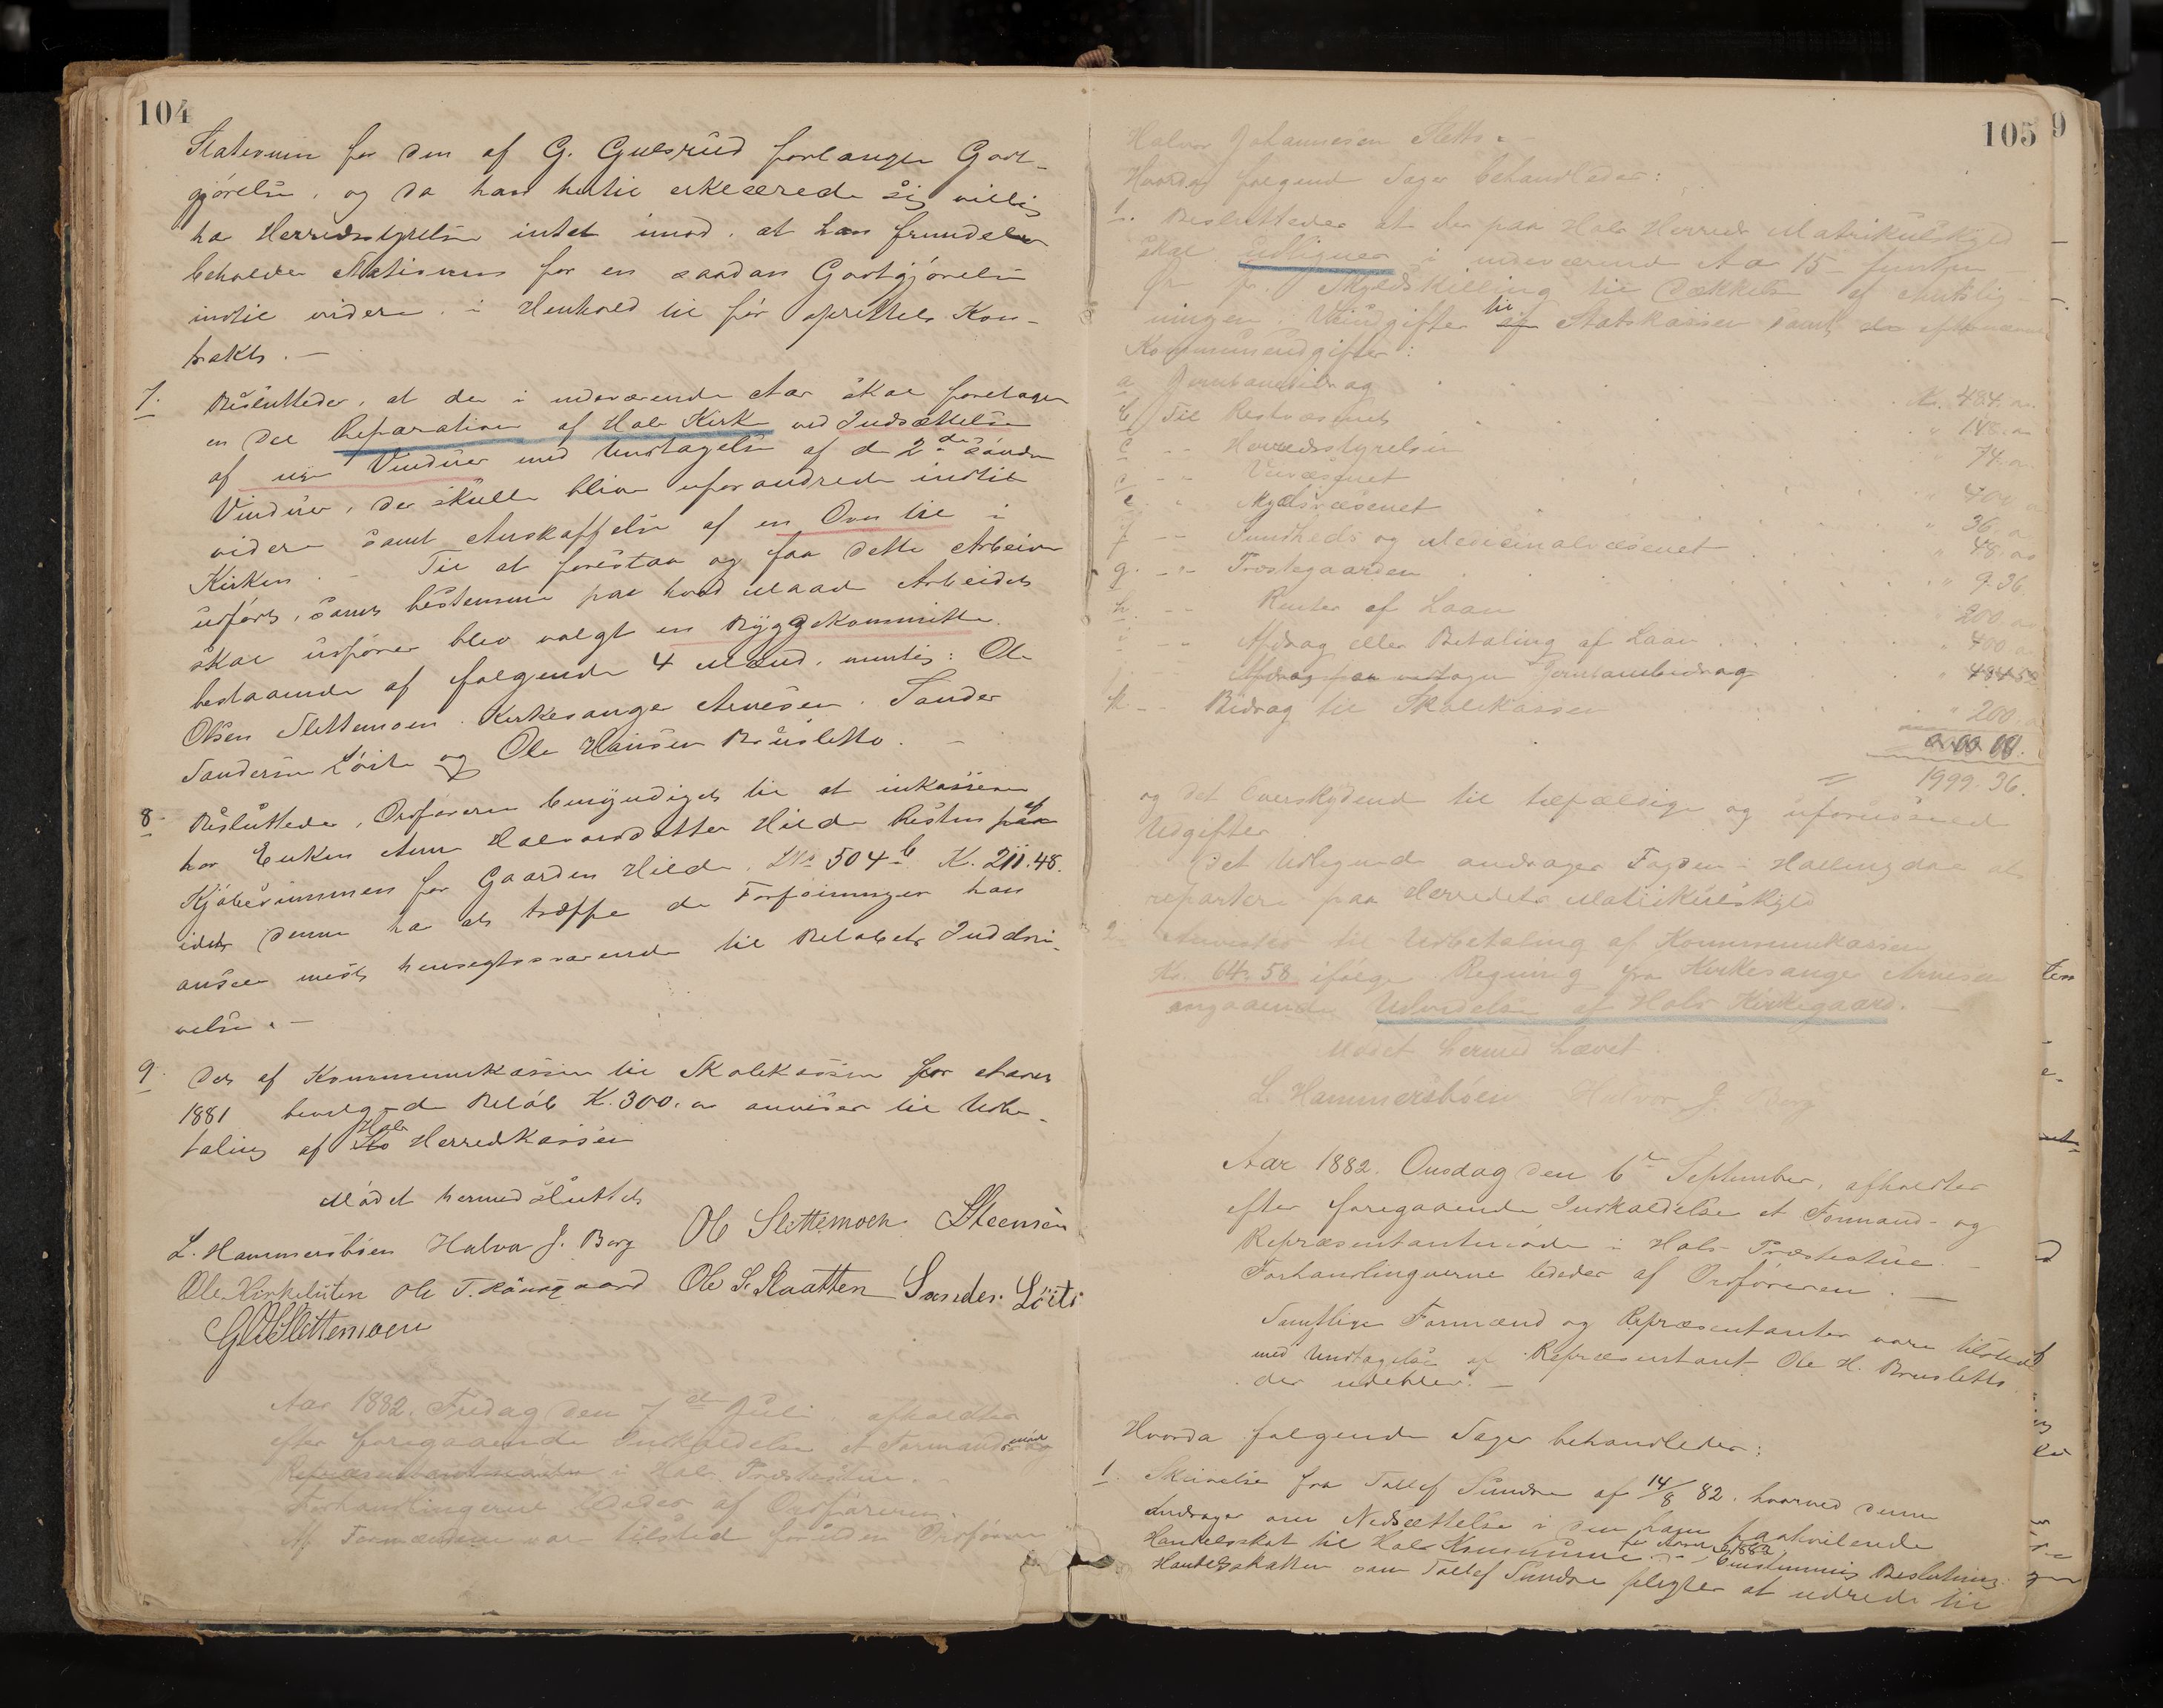 104
Stationen for den af G. Gulsrud forlangte Godt-
gjørelse, og da han hertil erklærede sig villig
har Herredsstyrelsen intet imod, at han fremdeles
beholder Stationen for en saadan Godtgjørelse
indtil videre, i Henhold til før oprettet Kon-
trakt. —
7. Besluttedes, at der i indeværende Aar skal foretages
en Del Reparation af Hols Kirke ved Indsættelse
af nye Vinduer med Undtagelse af de 2de søndre
Vinduer, der skulle blive uforandrede indtil
videre samt Anskaffelse af en Ovn til i
Kirken. — Til at forestaa og faa dette Arbeide
udført, samt bestemme paa hvad Maade Arbeidet
skal udføres blev valgt en Byggekommitte
bestaaende af følgende 4 Mænd, nemlig: Ole
Olsen Slettemoen, Kirkesanger Arnesen, Sander
Sandersen Løite og Ole Hansen Brusletto. —
8. Besluttedes, Ordføreren bemyndiget til at inkassere
hos Enken Anne Halvorsdatter Hilde Resten paa af
Kjøbesummen for Gaarden Hilde, LNo 504 b Kr. 211.48.
idet denne har at træffe de Forføininger han
anseer mest hensigtssvarende til Beløbets Inddri-
velse. —
9. Det af Kommunekassen til Skolekassen for Aaret
1881 bevilgede Beløb Kr. 300.00 anvises til Udbe-
taling af Hols Herredkasse
Mødet hermed sluttet
L. Hammersbøen Halvor J. Berg Ole Slettemoen SSteensen
Ole Kirkeluten Ole T. Raungaard Ole S. Slaatten Sander Löite
G O Slettemoen
Aar 1882. Fredag den 7de Juli afholdtes
efter foregaaende Indkaldelse et Formandsmøde og
Repræsentantmøde i Hols Præstestue. —
Forhandlingerne lededes af Ordføreren.
Af Formændene var tilstede foruden Ordføreren
105
9
Halvor Johannesen Sletto. —
Hvorda følgende Sager behandledes:
1. Besluttedes at der paa Hols Herreds Matrikulskyld
skal udlignes i indeværende Aar 15 — femten
Øre pr. Skyldskilling til Dækkelse af Amtslig-
ningen, Udgifter til Statskassen samt de efternævnte
Kommuneudgifter:
a Jernbanebidrag Kr. 484.00
b Til Retsvæsenet " 148.00
c -- Herredsstyrelsen " 74.00
d -- Veivæsenet " 400
e " Skydsvæsenet " 36.00
f -- Sundheds og Medicinalvæsenet " 48.00
g. -"- Præstegaarden " 9.36
h. -- Renter af Laan " 200.00
i -- Afdrag eller Betaling af Laan " 400
j -- Afdrag paa vedtagne Jernbanebidrag " 484.52
k -- Bidrag til Skolekassen " 200.
= 1999.36.
og det Overskydende til tilfældige og uforudseede
Udgifter
Det Udlignede andrages Fogden i Hallingdal at
repartere paa Herredets Matrikulskyld
2. Anvistes til Udbetaling af Kommunekassen
Kr. 64.58 ifølge Regning fra Kirkesanger Arnesen
angaaende Udvidelse af Hols Kirkegaard. —
Mødet hermed hævet.
L. Hammersbøen Halvor J Berg
Aar 1882. Onsdag den 6te September, afholdtes
efter foregaaende Indkaldelse et Formand- og
Repræsentantmøde i Hols Præstestue. —
Forhandlingerne lededes af Ordføreren. —
Samtlige Formænd og Repræsentanter vare tilstede
med Undtagelse af Repræsentant Ole H. Brusletto
der udeblev. —
Hvorda følgende Sager behandledes:
1. Skrivelse fra Tollef Sundre af 14/8 82, hvorved denne
andrager om Nedsættelse i den ham paahvilende
Handelsskat til Hols Kommune for Aaret 1882. Enstemmig Beslutning:
Handelsskatten som Tollef Sundre pligter at udrede til